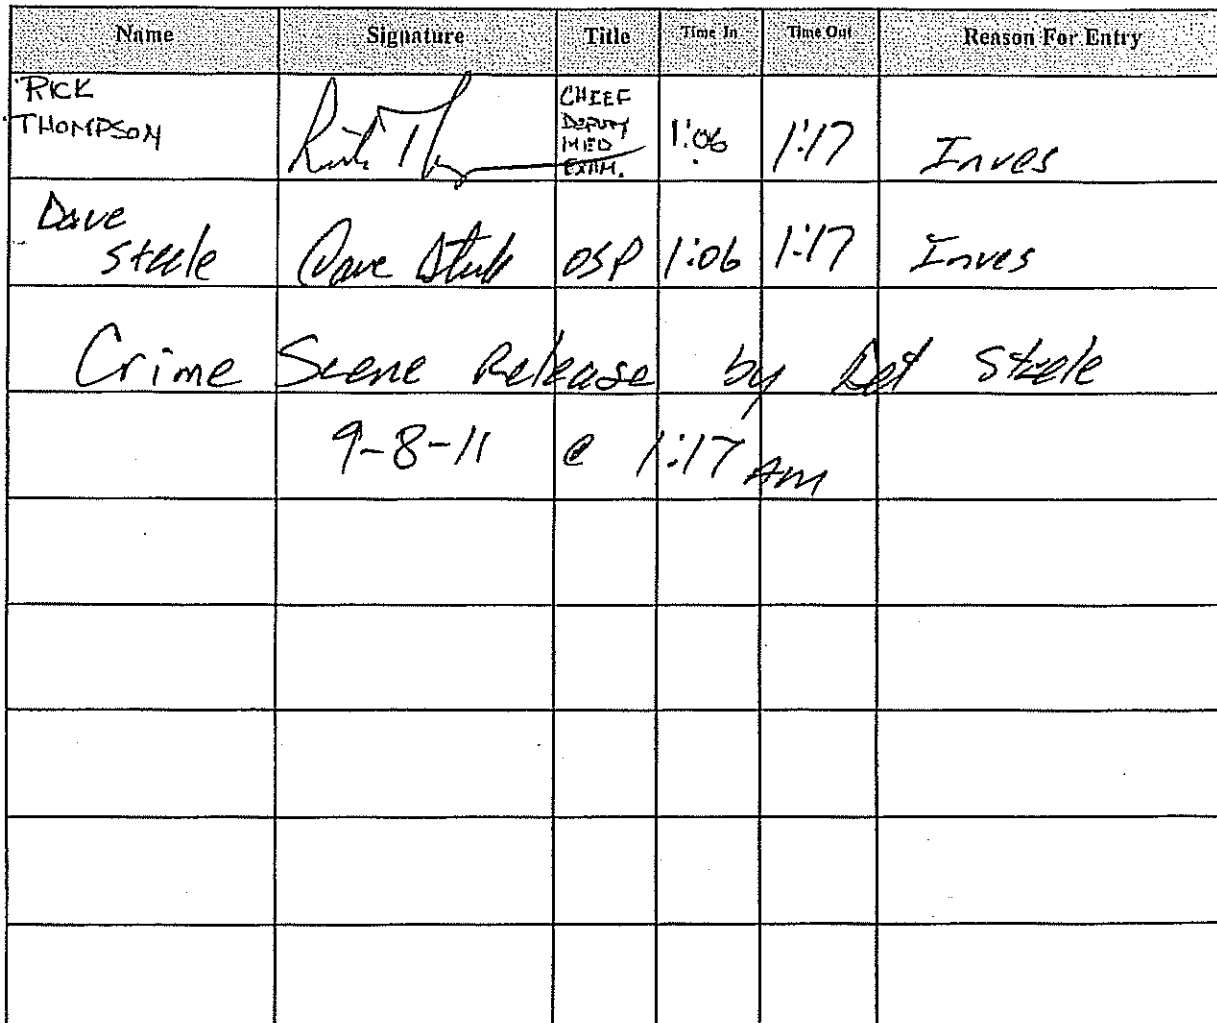 Name Signature Title Time In Time Out Reason For Entry
RICK
THOMPSON
CHIEF
DEPUTY
MED
EXAM.
1:06 1:17 Inves
Dave
Steele Dave Steele OSP 1:06 1:17 Inves
Crime Scene Release by Det Steele
9-8-11 @ 1:17 AM